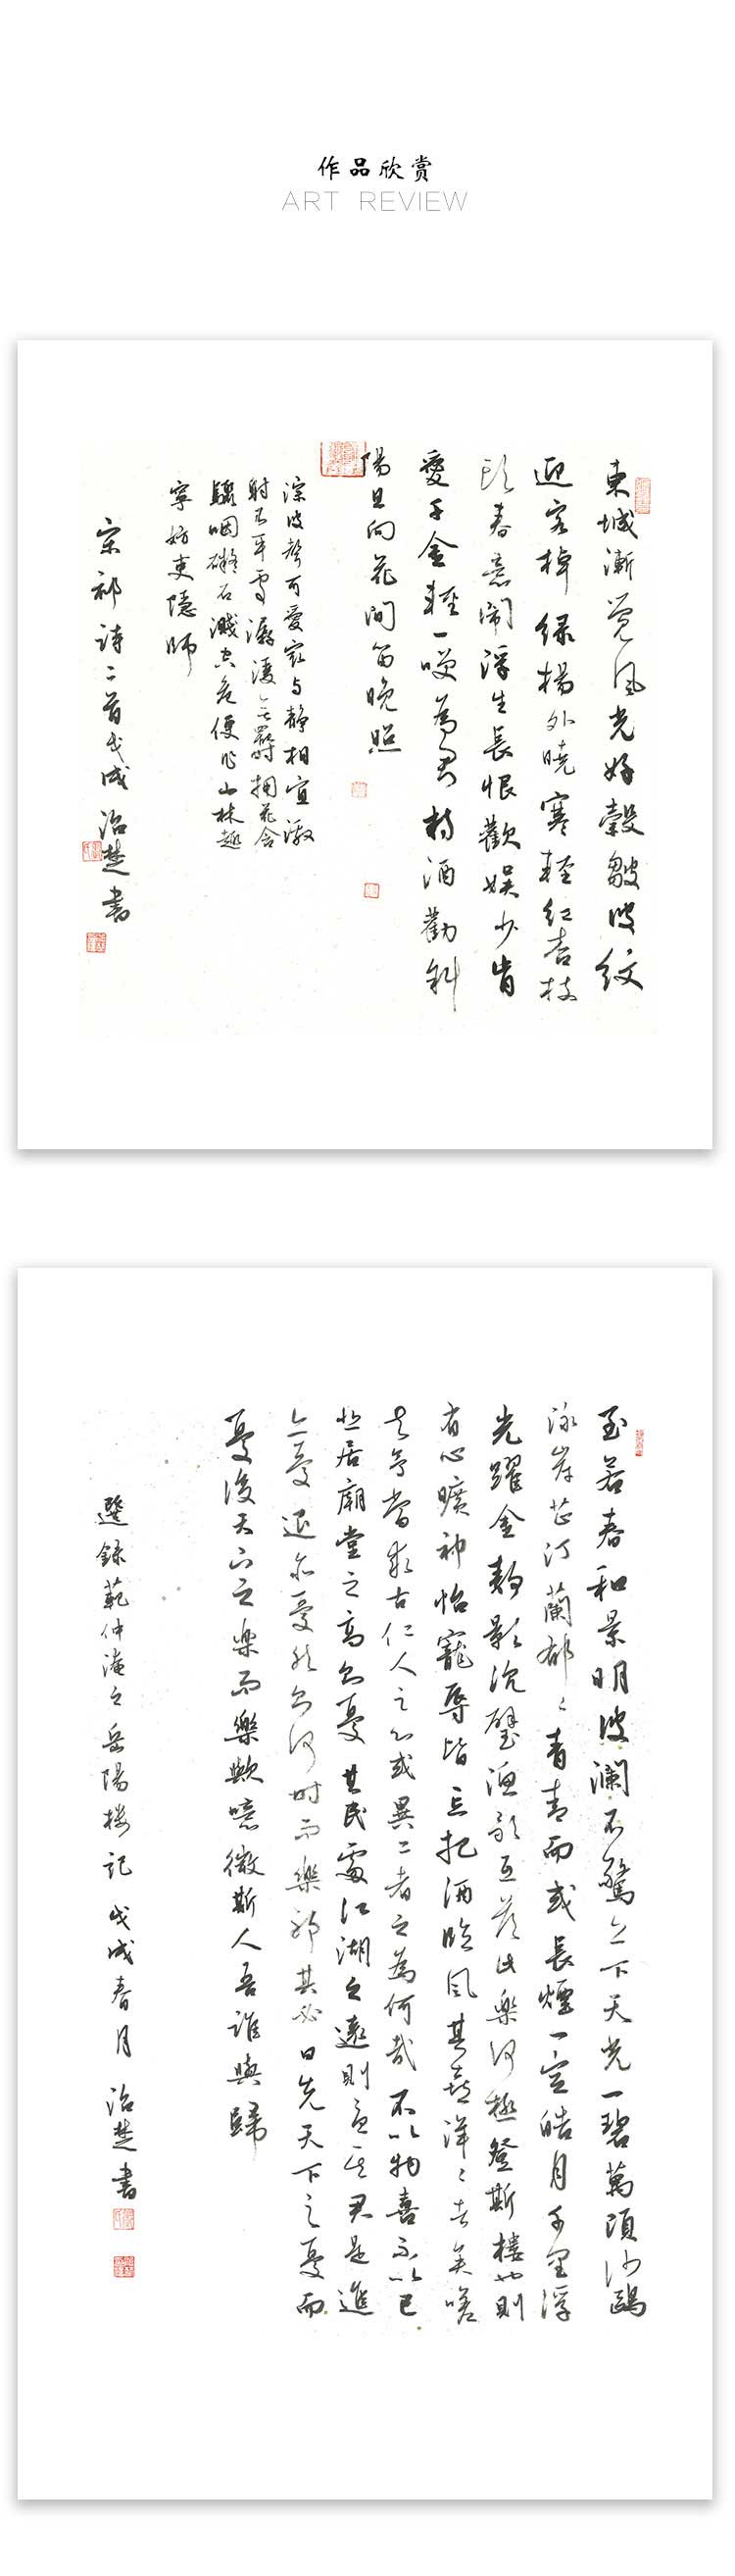 作品欣赏
ART REVIEW
東城漸覺風光好縠皺波紋
迎客棹綠楊外曉寒輕紅杏枝
頭春意鬧浮生長恨歡娛少肯
愛千金輕一笑為君持酒勸斜
陽且向花間留晚照
深波聲可愛寂与靜相宜激
射玉平雪潺湲
驅咽礙石濺空危便作山林趣
寧妨吏隱師
宋祁詩二首戊戌 治楚書
至若春和景明波瀾不驚上下天光一碧萬頃沙鷗
泳岸芷汀蘭郁々青青而或長煙一空皓月千里浮
光躍金靜影沉璧漁歌互答此樂何極登斯樓也則
有心曠神怡寵辱皆忘把酒臨風其喜洋々者矣嗟
夫予嘗求古仁人之心或異二者之為何哉不以物喜不以己
悲居廟堂之高則憂其民處江湖之遠則憂其君是進
亦憂退亦憂然則何時而樂耶其必曰先天下之憂而
憂後天下之樂而樂歟噫微斯人吾誰與歸
選錄範仲淹之岳陽樓記 戊戌春月 治楚書